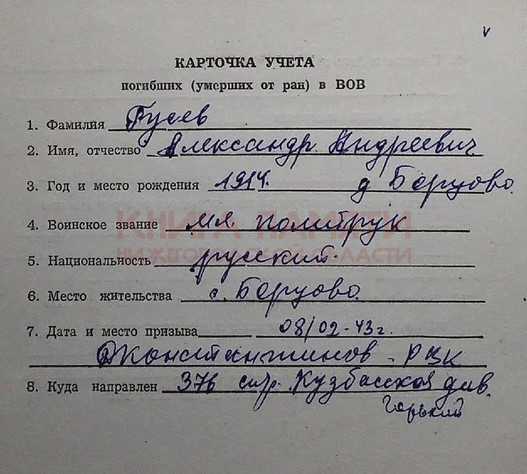 КАРТОЧКА УЧЕТА
погибших (умерших от ран) в ВОВ
1. Фамилия Гусев
2. Имя, отчество Александр Андреевич
3. Год и место рождения 1914. д Берцово.
КНИГА ПАМЯТИ
4. Воинское звание мл. политрук
НИЖЕГОРОДСКОЙ ОБЛАСТИ
5. Национальность русский.
6. Место жительства с. Берцово.
7. Дата и место призыва 08/02-43г.
Константинов - РВК
8. Куда направлен 376 стр. Кузбасской див.
Горький